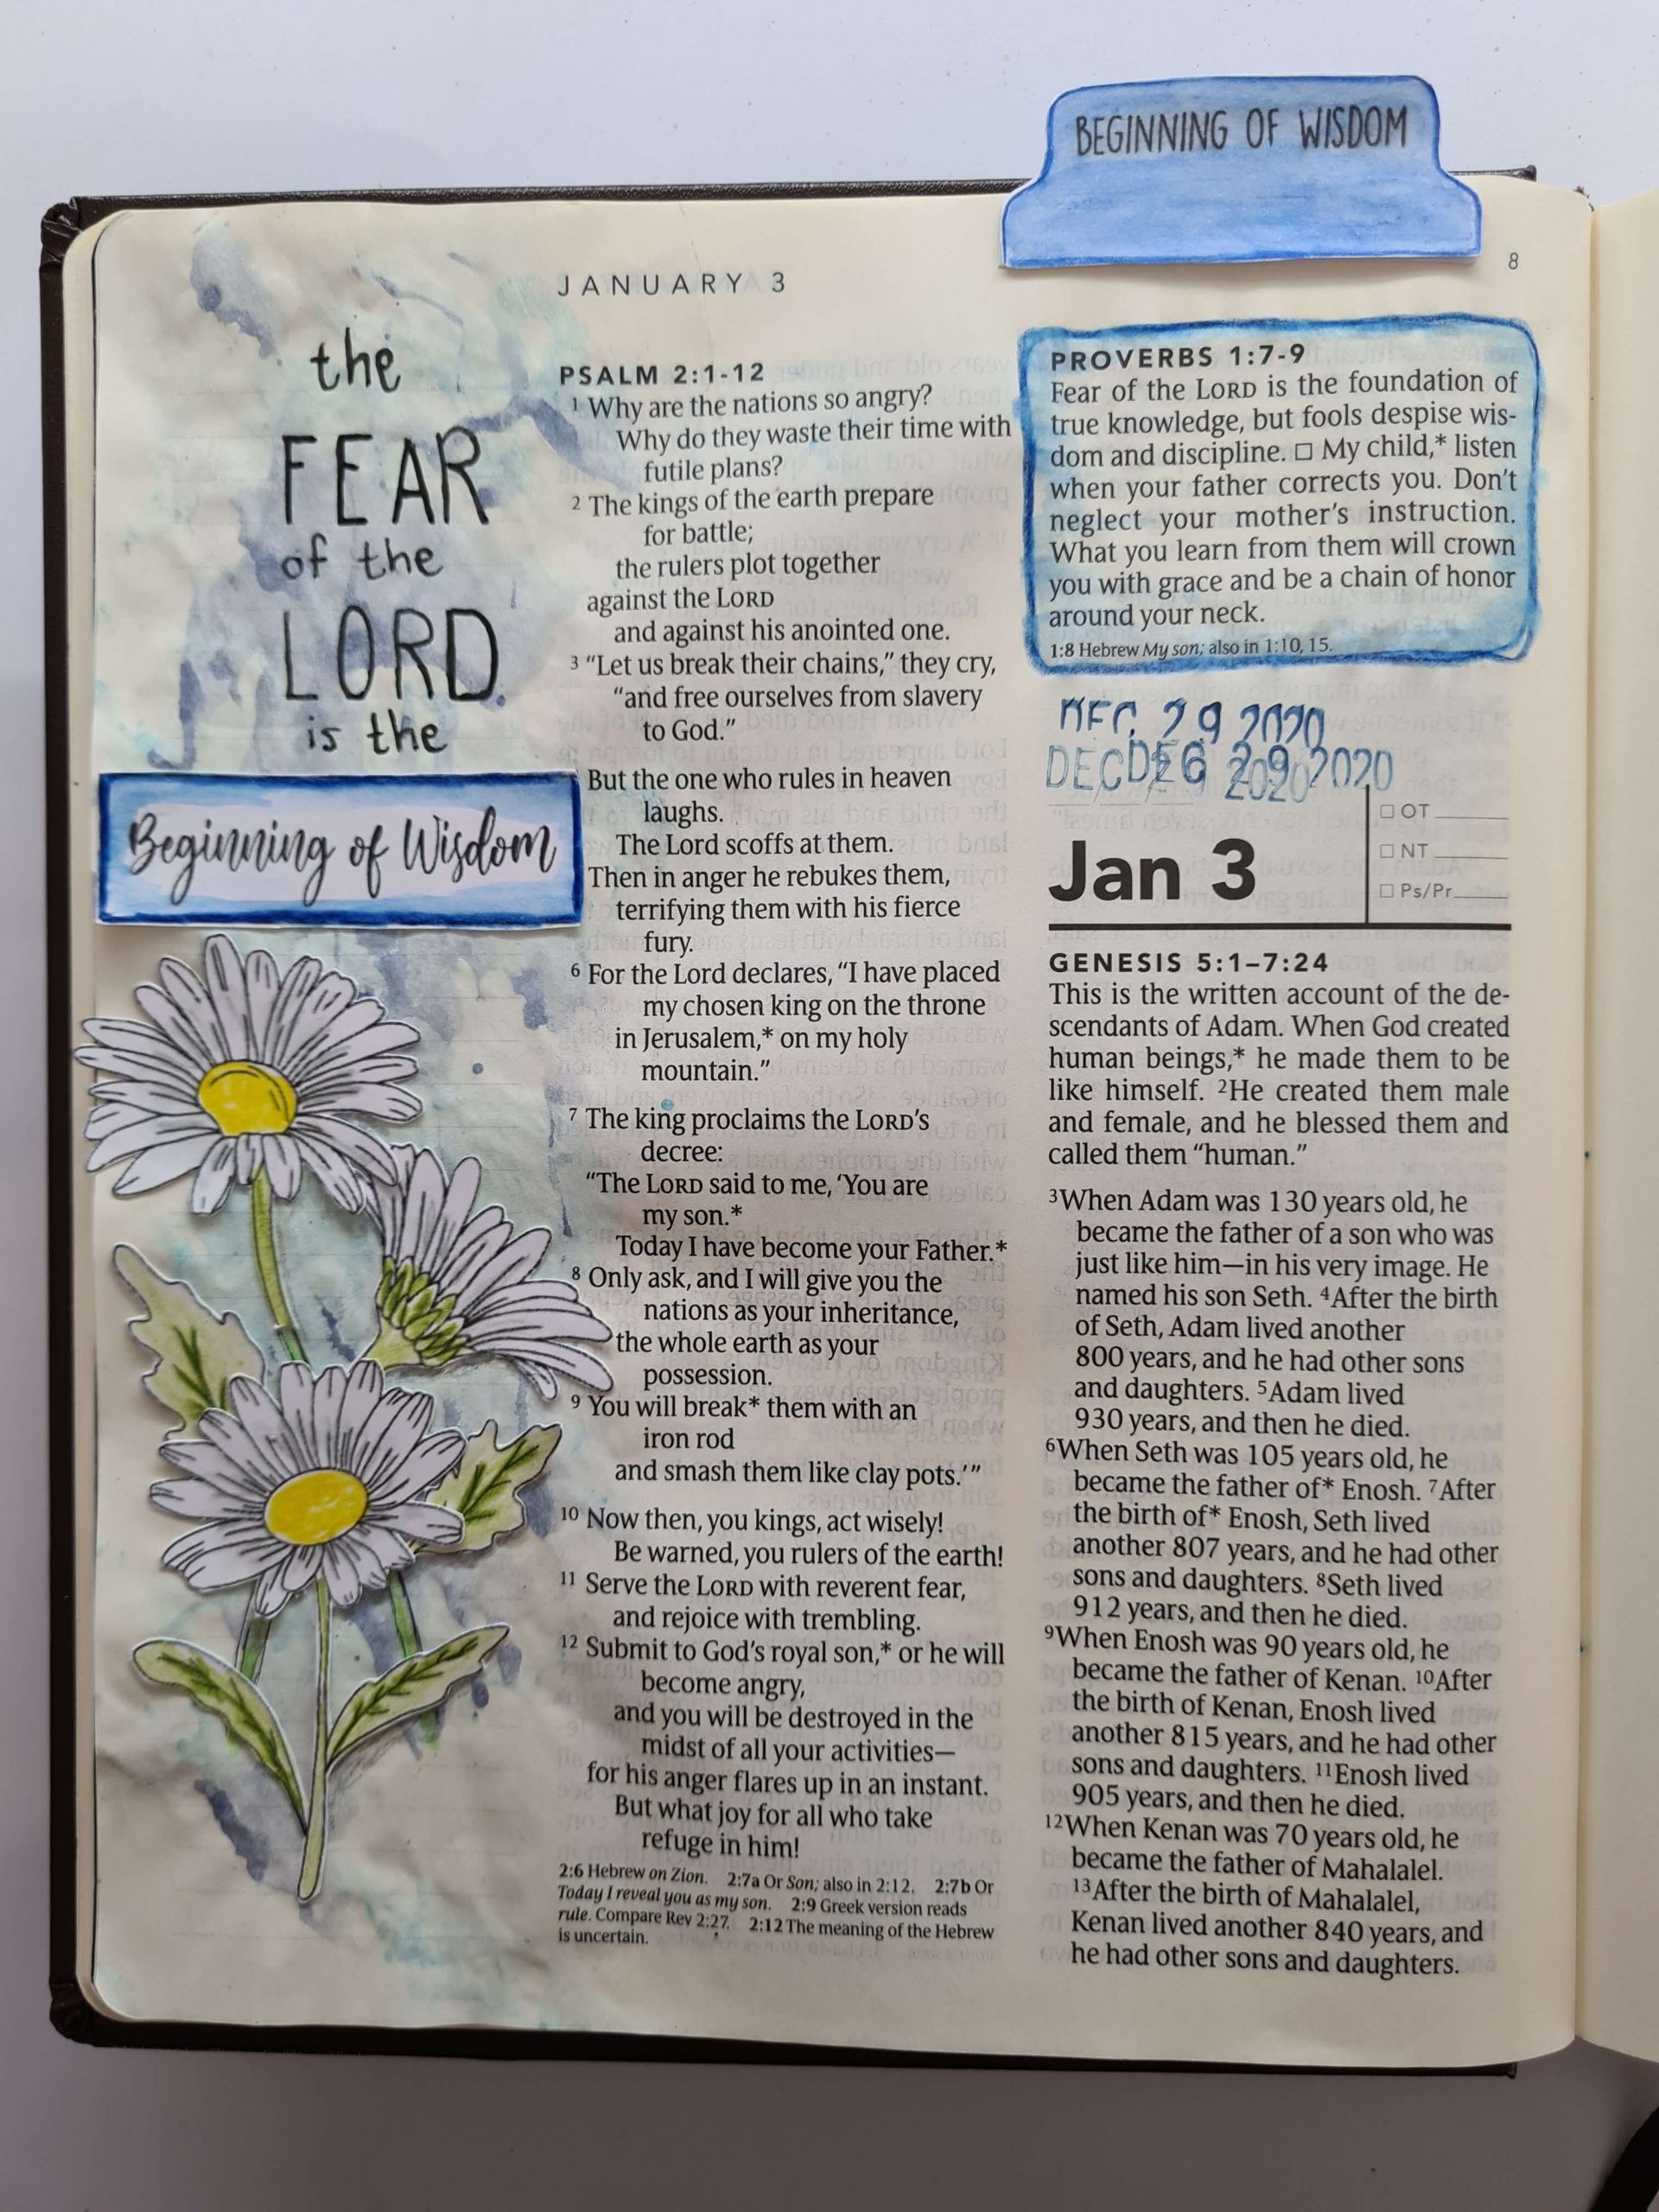 BEGINNING OF WISDOM
8
JANUARY 3
the
FEAR
of the
LORD
is the
Beginning of Wisdom
PSALM 2:1-12
1 Why are the nations so angry?
Why do they waste their time with
futile plans?
2 The kings of the earth prepare
for battle;
the rulers plot together
against the LORD
and against his anointed one.
3 “Let us break their chains,” they cry,
“and free ourselves from slavery
to God.”
But the one who rules in heaven
laughs.
The Lord scoffs at them.
Then in anger he rebukes them,
terrifying them with his fierce
fury.
6 For the Lord declares, “I have placed
my chosen king on the throne
in Jerusalem,* on my holy
mountain.”
7 The king proclaims the LORD’S
decree:
“The LORD said to me, ‘You are
my son.*
Today I have become your Father.*
8 Only ask, and I will give you the
nations as your inheritance,
the whole earth as your
possession.
9 You will break* them with an
iron rod
and smash them like clay pots.’”
10 Now then, you kings, act wisely!
Be warned, you rulers of the earth!
11 Serve the LORD with reverent fear,
and rejoice with trembling.
12 Submit to God’s royal son,* or he will
become angry,
and you will be destroyed in the
midst of all your activities—
for his anger flares up in an instant.
But what joy for all who take
refuge in him!
2:6 Hebrew on Zion. 2:7a Or Son; also in 2:12. 2:7b Or
Today I reveal you as my son. 2:9 Greek version reads
rule. Compare Rev 2:27. 2:12 The meaning of the Hebrew
is uncertain.
PROVERBS 1:7-9
Fear of the LORD is the foundation of
true knowledge, but fools despise wis-
dom and discipline. □ My child,* listen
when your father corrects you. Don’t
neglect your mother’s instruction.
What you learn from them will crown
you with grace and be a chain of honor
around your neck.
1:8 Hebrew My son; also in 1:10, 15.
DEC 29 2020
DEC 29 2020
Jan 3
□ OT
□ NT
□ Ps/Pr
GENESIS 5:1–7:24
This is the written account of the de-
scendants of Adam. When God created
human beings,* he made them to be
like himself. 2He created them male
and female, and he blessed them and
called them “human.”
3When Adam was 130 years old, he
became the father of a son who was
just like him—in his very image. He
named his son Seth. 4After the birth
of Seth, Adam lived another
800 years, and he had other sons
and daughters. 5Adam lived
930 years, and then he died.
6When Seth was 105 years old, he
became the father of* Enosh. 7After
the birth of* Enosh, Seth lived
another 807 years, and he had other
sons and daughters. 8Seth lived
912 years, and then he died.
9When Enosh was 90 years old, he
became the father of Kenan. 10After
the birth of Kenan, Enosh lived
another 815 years, and he had other
sons and daughters. 11Enosh lived
905 years, and then he died.
12When Kenan was 70 years old, he
became the father of Mahalalel.
13After the birth of Mahalalel,
Kenan lived another 840 years, and
he had other sons and daughters.